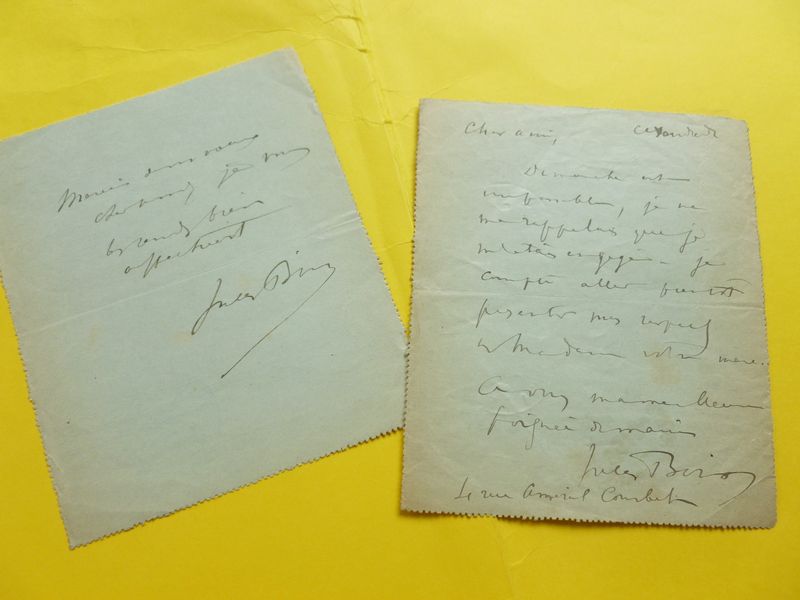 cher ami, je vous
bien
affectueusement
Jules Bois
Cher ami, ce vendredi
Dimanche est
impossible, je ne
me rappelais que je
m'étais engagé - je
compte aller bientôt
présenter mes respects
à Madame votre mère..
A vous ma meilleure
poignée de mains
Jules Bois
rue Amiral Courbet